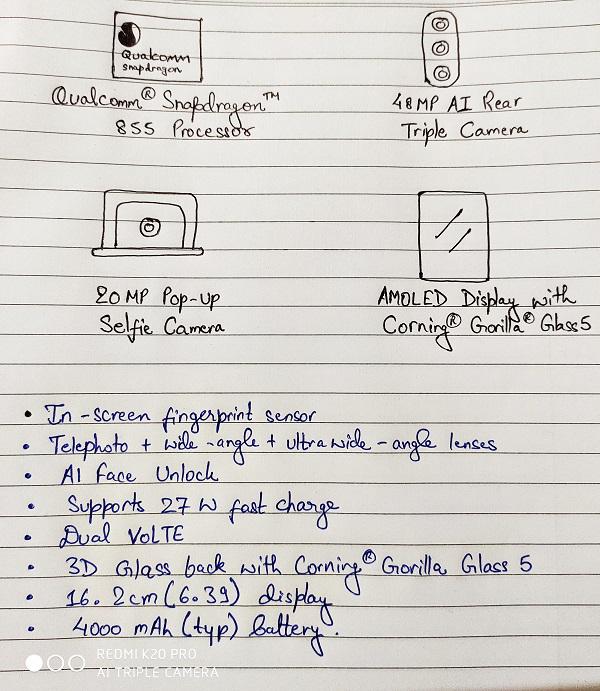 Qualcomm
snapdragon
Qualcomm® Snapdragon™
855 Processor
48MP AI Rear
Triple Camera
20 MP Pop-Up
Selfie Camera
AMOLED Display with
Corning® Gorilla® Glass 5
• In-screen fingerprint sensor
• Telephoto + wide-angle + ultra wide-angle lenses
• AI Face Unlock
• Supports 27 W fast charge
• Dual VoLTE
• 3D Glass back with Corning® Gorilla Glass 5
• 16.2cm (6.39) display
• 4000 mAh (typ) battery.
REDMI K20 PRO
AI TRIPLE CAMERA